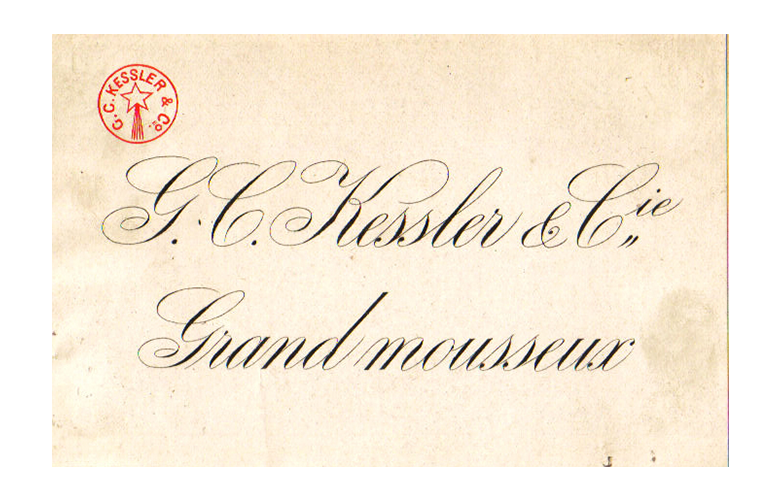 G. C. KESSLER & Co.
G. C. Kessler & Cie
Grand mousseux